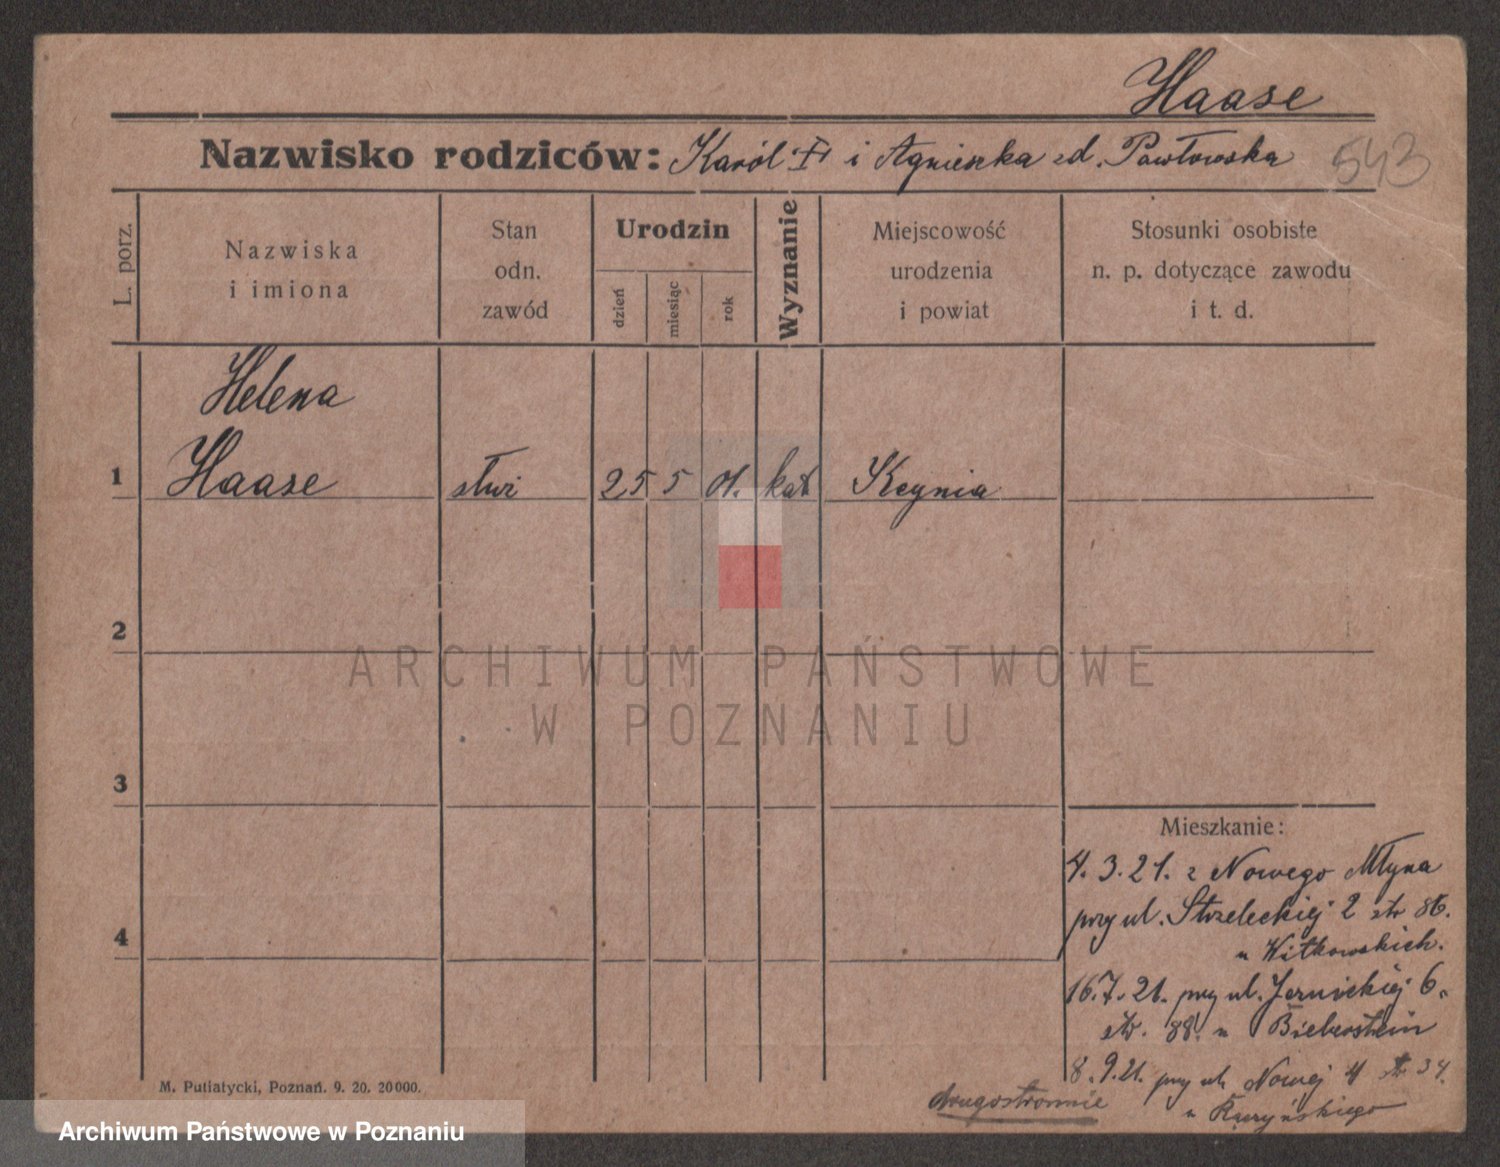 Haase
Nazwisko rodziców: Karól † i Agnieszka zd. Pawłowska
543
L. porz.
Nazwiska
i imiona
Stan
odn.
zawód
Urodzin
dzień
miesiąc
rok
Wyznanie
Miejscowość
urodzenia
i powiat
Stosunki osobiste
n. p. dotyczące zawodu
i t. d.
Helena
1 Haase służ 25 5 01. kat Kcynia
2
3
4
Mieszkanie:
4. 3. 21. z Nowego Młyna
przy ul. Strzeleckiej 2 str 86.
u Witkowskich.
16. 7. 21. przy ul. 6.
str. 88. u Bieberstein
8. 9. 21. przy ul. Nowej 4 str 34.
u
drugostronnie
M. Putiatycki, Poznań. 9. 20. 20000.
ARCHIWUM PAŃSTWOWE
W POZNANIU
Archiwum Państwowe w Poznaniu